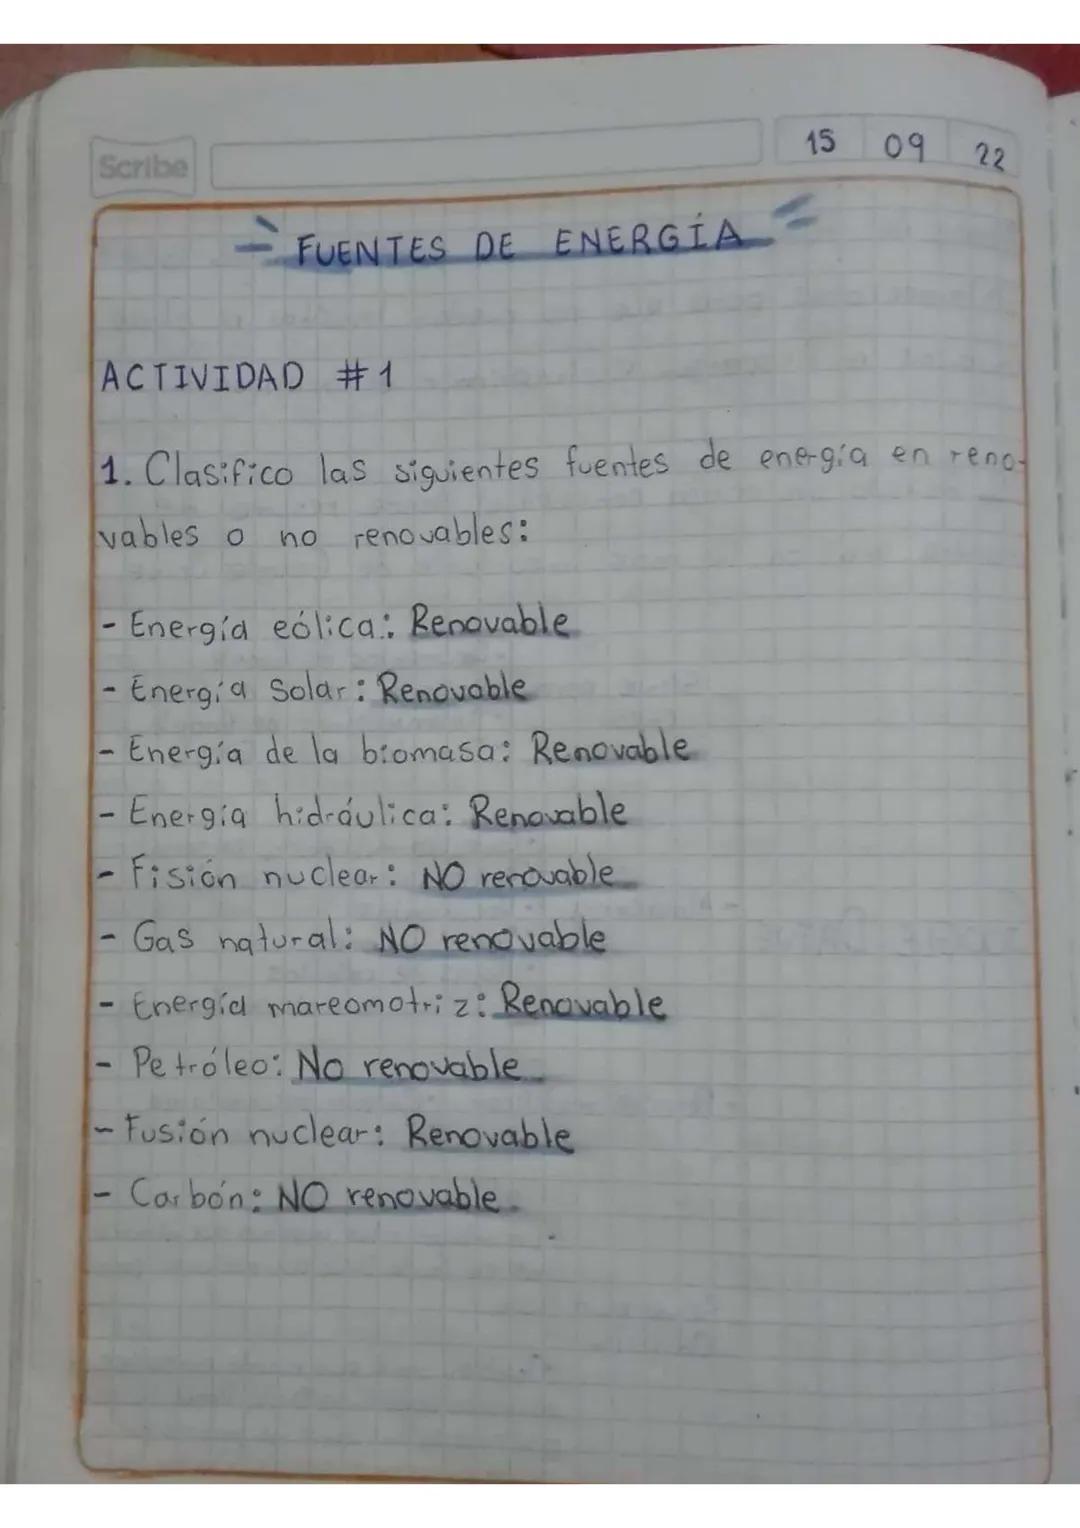 Scribe
15 09 22
FUENTES DE ENERGÍA
ACTIVIDAD #1
1. Clasifico las siguientes fuentes de energía en reno-
vables o no renovables:
- Energía eólica: Renovable
- Energía Solar: Renovable
- Energía de la biomasa: Renovable
- Energía hidráulica: Renovable
- Fisión nuclear: NO renovable
- Gas natural: NO renovable
- Energía mareomotriz: Renovable
- Petróleo: No renovable
- Fusión nuclear: Renovable
- Carbón: NO renovable.